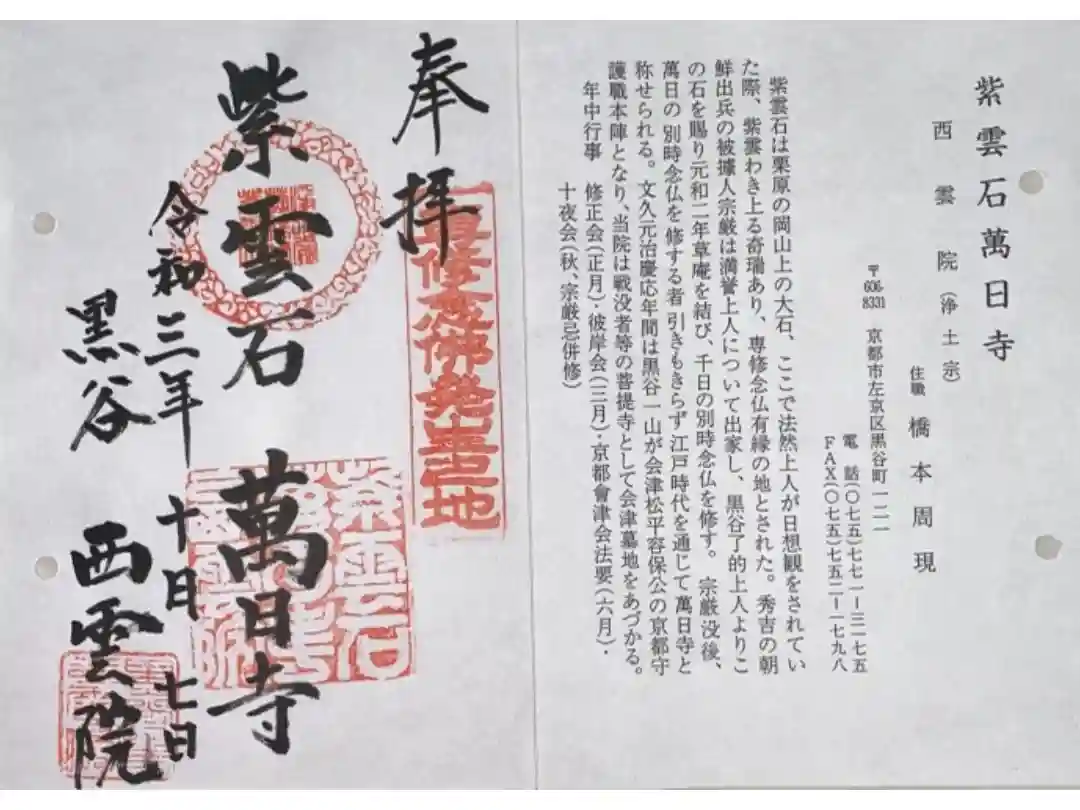 紫雲石萬日寺
西雲院(浄土宗)
住職 橋本周現
〒606-8331 京都市左京区黒谷町一二一
電話(〇七五)七七一-三一七五
FAX(〇七五)七五二-一七九八
紫雲石は栗原の岡山上の大石、ここで法然上人が日想観をされてい
た際、紫雲わき上る奇瑞あり、専修念仏有縁の地とされた。秀吉の朝
鮮出兵の被擄人宗厳は満誉上人について出家し、黒谷了的上人よりこ
の石を賜り元和二年草庵を結び、千日の別時念仏を修す。 宗厳没後、
萬日の別時念仏を修する者引きもきらず江戸時代を通じて萬日寺と
称せられる。文久元治慶応年間は黒谷一山が会津松平容保公の京都守
護職本陣となり、当院は戦没者等の菩提寺として会津墓地をあづかる。
年中行事 修正会(正月)・彼岸会(三月)・京都會津会法要(六月)・
十夜会(秋、宗厳忌併修)
奉拝
紫雲石 萬日寺
令和三年 十月 七日
黒谷 西雲院